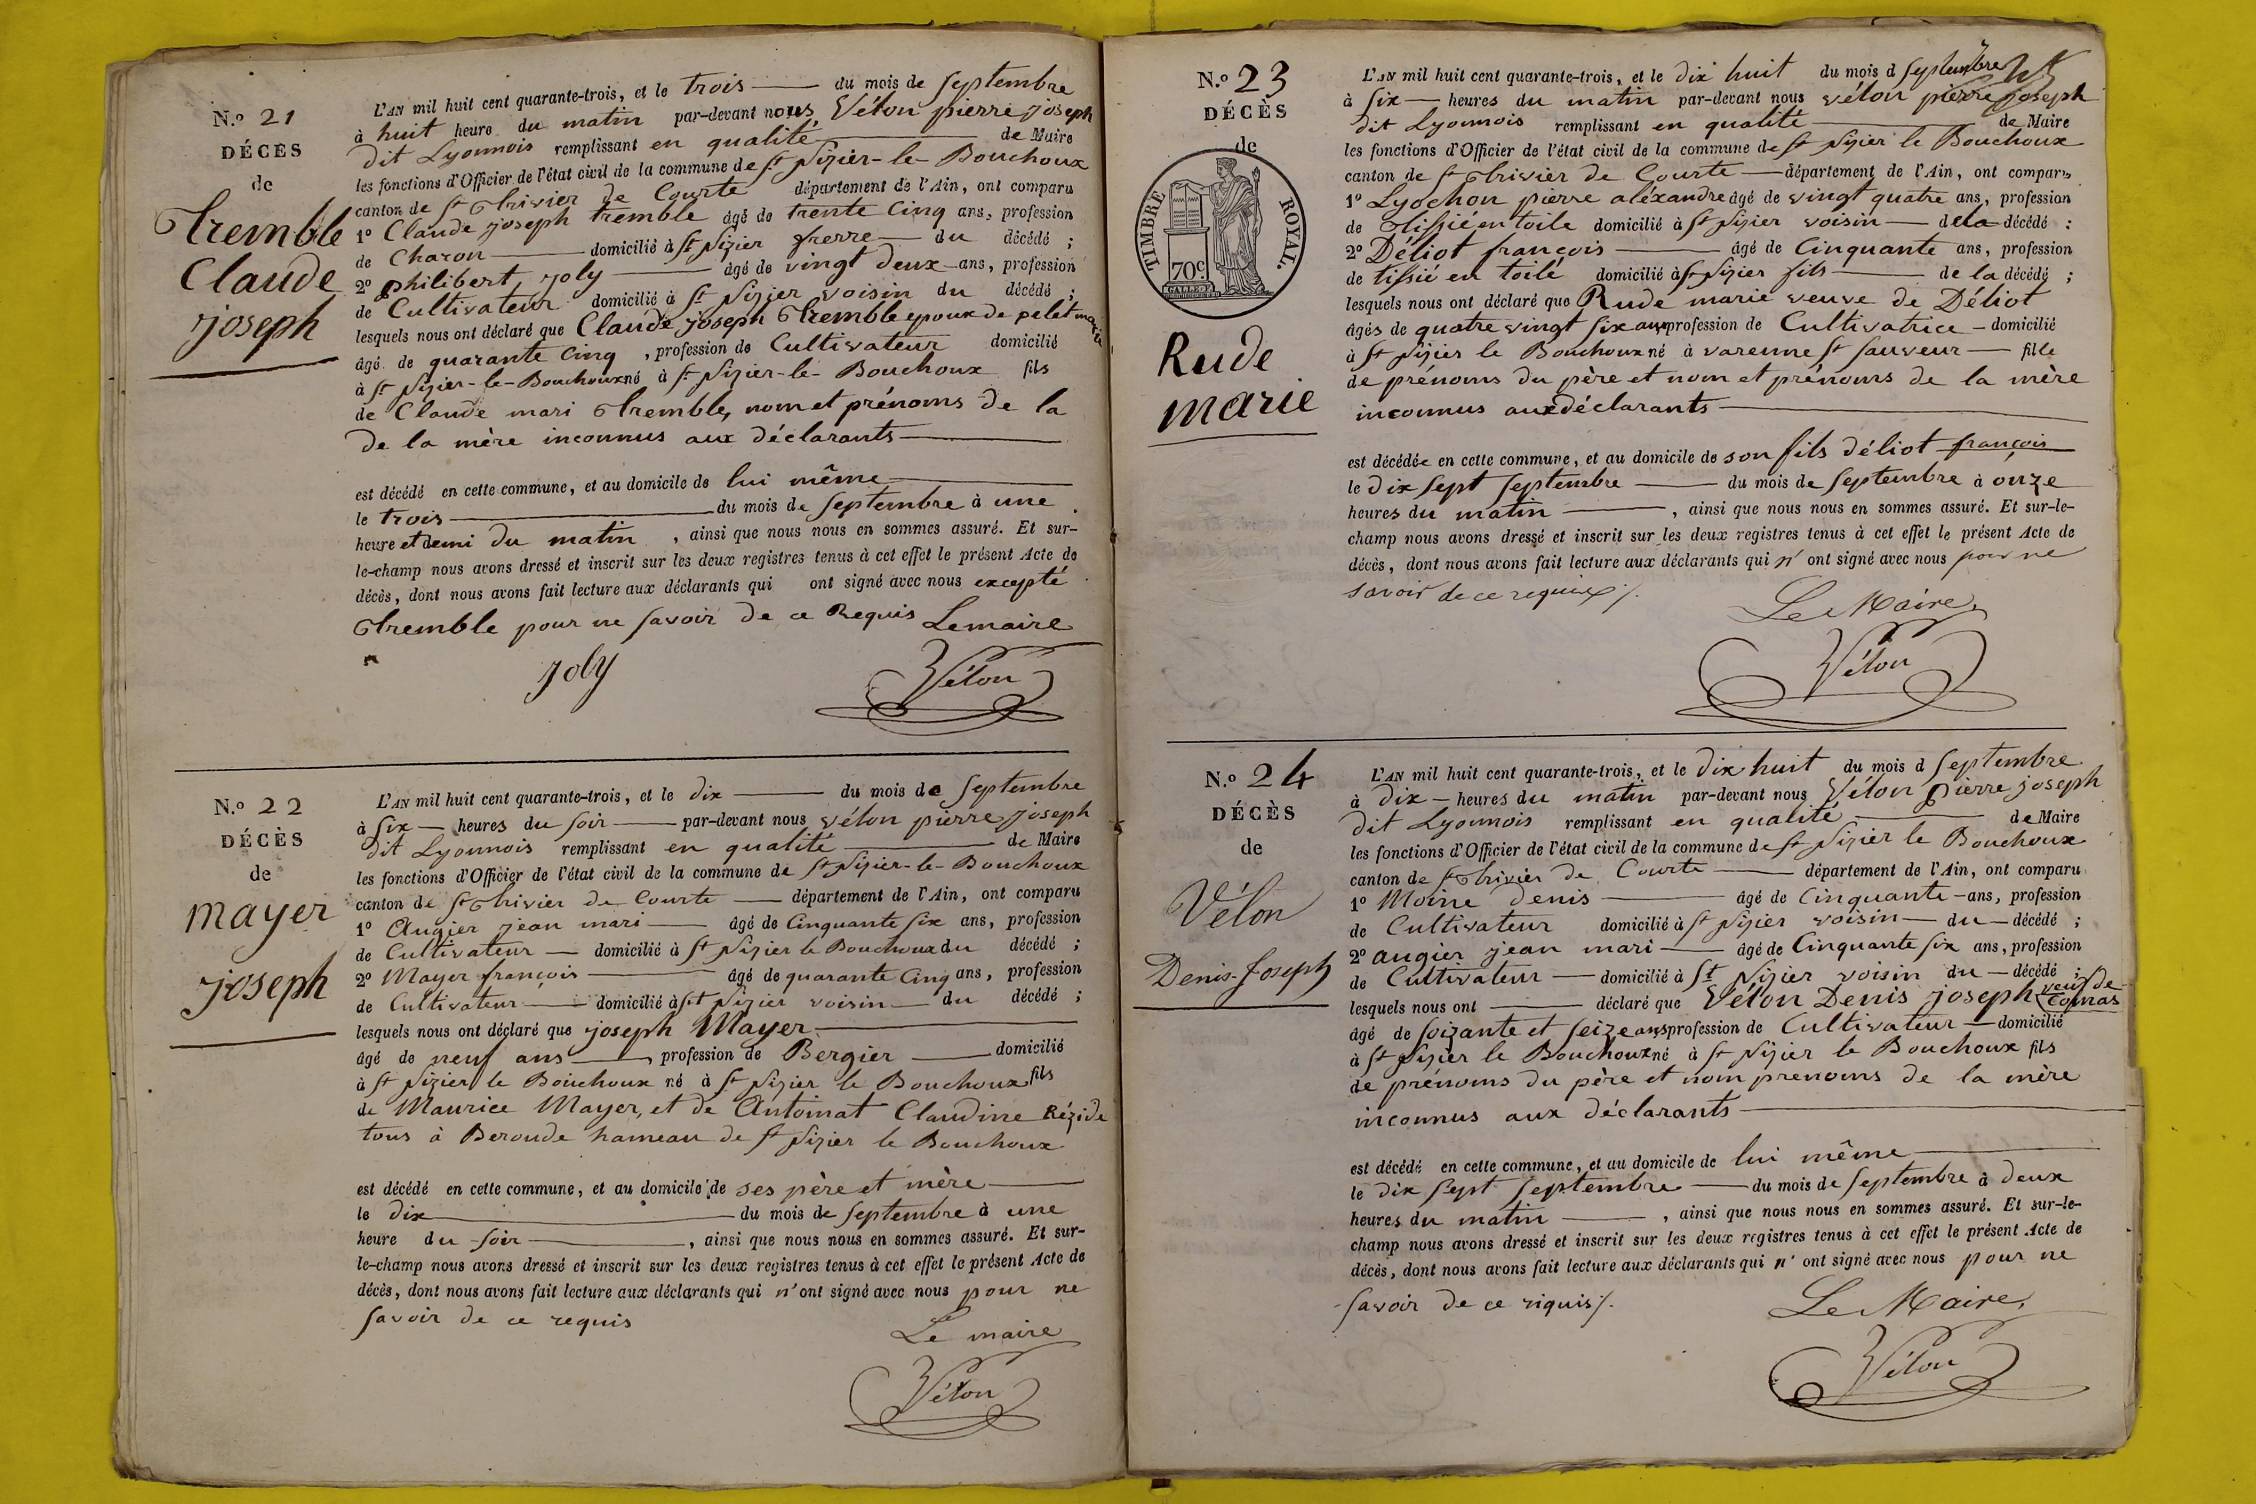 N.o 21
DÉCÈS
de
Tremble
Claude
joseph
L'AN mil huit cent quarante-trois, et le trois du mois de Septembre
à huit heure du matin par-devant nous, Vélon pierre joseph
dit Lyonnois remplissant en qualité de Maire
les fonctions d'Officier de l'état civil de la commune de St Nizier-le-Bouchoux
canton de St Trivier de Courte département de l'Ain, ont comparu
1o Claude joseph tremble âgé de trente Cinq ans, profession
de Charon domicilié à St Nizier frerre du décédé ;
2o philibert joly âgé de vingt deux ans, profession
de Cultivateur domicilié à St Nizier voisin du décédé ;
lesquels nous ont déclaré que Claude joseph Tremble epoux de pelet marie
âgé de quarante Cinq , profession de Cultivateur domicilié
à St Nizier-le-Bouchoux né à St Nizier-le-Bouchoux fils
de Claude mari Tremble, nom et prénoms de la
de la mère inconnus aux déclarants
est décédé en cette commune, et au domicile de lui même
le trois du mois de Septembre à une
heure et demi du matin , ainsi que nous nous en sommes assuré. Et sur-
le-champ nous avons dressé et inscrit sur les deux registres tenus à cet effet le présent Acte de
décès, dont nous avons fait lecture aux déclarants qui ont signé avec nous excepté
Tremble pour ne Savoir de ce Requis Lemaire
joly Vélon
N.o 22
DÉCÈS
de
mayer
joseph
L'AN mil huit cent quarante-trois, et le dix du mois de Septembre
à Six heures du Soir par-devant nous vélon pierre joseph
dit Lyonnois remplissant en qualité de Maire
les fonctions d'Officier de l'état civil de la commune de St Nizier-le-Bouchoux
canton de St Trivier de Courte département de l'Ain, ont comparu
1o Augier jean mari âgé de Cinquante Six ans, profession
de Cultivateur domicilié à St Nizier le Bouchoux du décédé ;
2o Mayer françois âgé de quarante Cinq ans, profession
de Cultivateur domicilié à St Nizier voisin du décédé ;
lesquels nous ont déclaré que joseph Mayer
âgé de neuf ans , profession de Bergier domicilié
à St Nizier le Bouchoux né à St Nizier le Bouchoux fils
de Maurice Mayer, et de Antoinat Claudine Rézide
tous à Beroude hameau de St Nizier le Bouchoux
est décédé en cette commune, et au domicile de ses père et mère
le dix du mois de Septembre à une
heure du Soir , ainsi que nous nous en sommes assuré. Et sur-
le-champ nous avons dressé et inscrit sur les deux registres tenus à cet effet le présent Acte de
décès, dont nous avons fait lecture aux déclarants qui n'ont signé avec nous pour ne
Savoir de ce requis
Le maire
Vélon
N.o 23
DÉCÈS
de
TIMBRE ROYAL.
70c
Rude
marie
L'AN mil huit cent quarante-trois, et le dix huit du mois d Septembre
à Six heures du matin par-devant nous vélon pierre joseph
dit Lyonnois remplissant en qualité de Maire
les fonctions d'Officier de l'état civil de la commune de St Nizier le Bouchoux
canton de St Trivier de Courte département de l'Ain, ont comparu
1o Lyochon pierre aléxandre âgé de vingt quatre ans, profession
de Tissié en toile domicilié à St Nizier voisin de la décédé :
2o Déliot françois âgé de Cinquante ans, profession
de tissié en toilé domicilié à St Nizier fils de la décédé ;
lesquels nous ont déclaré que Rude marie veuve de Déliot
âgés de quatre vingt Six ans profession de Cultivatrice domicilié
à St Nizier le Bouchoux né à varenne St Sauveur fille
de prénoms du père et nom et prénoms de la mère
inconnus aux déclarants
est décédée en cette commune, et au domicile de son fils déliot françois
le dix Sept Septembre du mois de Septembre à onze
heures du matin , ainsi que nous nous en sommes assuré. Et sur-le-
champ nous avons dressé et inscrit sur les deux registres tenus à cet effet le présent Acte de
décès, dont nous avons fait lecture aux déclarants qui n'ont signé avec nous pour ne
Savoir de ce requis ./.
Le Maire
Vélon
N.o 24
DÉCÈS
de
Vélon
Denis-Joseph
L'AN mil huit cent quarante-trois, et le dix huit du mois d Septembre
à dix heures du matin par-devant nous Vélon Pierre joseph
dit Lyonnois remplissant en qualité de Maire
les fonctions d'Officier de l'état civil de la commune de St Nizier le Bouchoux
canton de St Trivier de Courte département de l'Ain, ont comparu
1o Moine Denis âgé de Cinquante ans, profession
de Cultivateur domicilié à St Nizier voisin du décédé ;
2o augier jean mari âgé de Cinquante Six ans, profession
de Cultivateur domicilié à St Nizier voisin du décédé ;
lesquels nous ont déclaré que Vélon Denis joseph veuf de Comas
âgé de Soizante et Seize ans profession de Cultivateur domicilié
à St Nizier le Bouchoux né à St Nizier le Bouchoux fils
de prénoms du père et nom prenoms de la mère
inconnus aux déclarants
est décédé en cette commune, et au domicile de lui même
le dix Sept Septembre du mois de Septembre à deux
heures du matin , ainsi que nous nous en sommes assuré. Et sur-le-
champ nous avons dressé et inscrit sur les deux registres tenus à cet effet le présent Acte de
décès, dont nous avons fait lecture aux déclarants qui n'ont signé avec nous pour ne
Savoir de ce riquis ./.
Le Maire,
Vélon